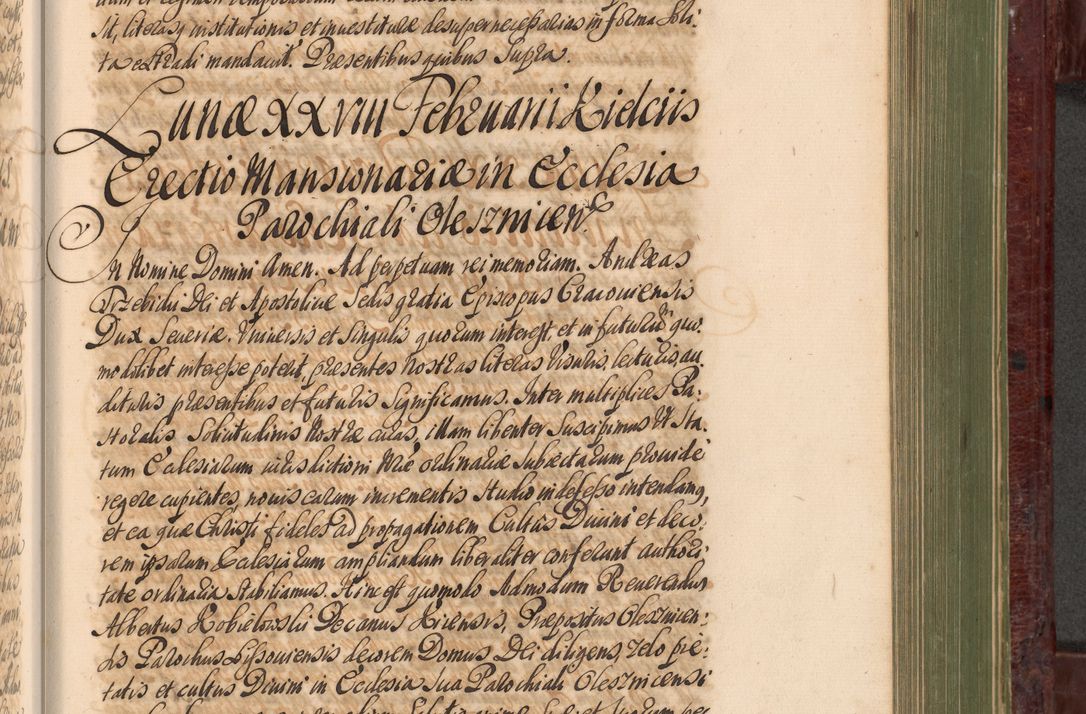 st, literasq institutionis et investiturae desuper necessarias in forma soli-
ta extradi mandavit. Praesentibus quibus supra.
Lunae XXVIII Februarii Kielciis
Erectio Mansionariae in Ecclesia
Parochiali Oleszniicen
In Nomine Domini Amen. Ad perpetuam rei memoriam. Andreas
Trzebicki Dei et Apostolicae Sedis gratia Episcopus Cracoviensis
Dux Severiae. Universis et singulis quorum interest, et in futurum quo-
modolibet interesse poterit, praesentes nostras literas visuris, lecturis, au-
dituris praesentibus et futuris significamus. Inter multiplices Pa-
storalis solicitudinis nostrae curas, illam libenter suscipimus ut sta-
tum Ecclesiarum iurisdictioni nrae ordinariae subiectarum provide
regere cupientes, novis earum incrementis studio indefesso intendamq,
et ea quae Christi fideles ad propagationem Cultus Divini et deco-
rem ipsarum Ecclesiarum ampliandum liberaliter conferunt authori-
tate ordinaria stabiliamus. Hinc est quomodo Admodum Reverendus
Albertus Kobielowski Decanus Kurensis, Praepositus Oleszniicen-
sis Parochus Lissoviensis decorem Domus Dei diligens, zelo pie-
tatis et cultus Divini in Ecclesia sua Parochiali Olesznicensi